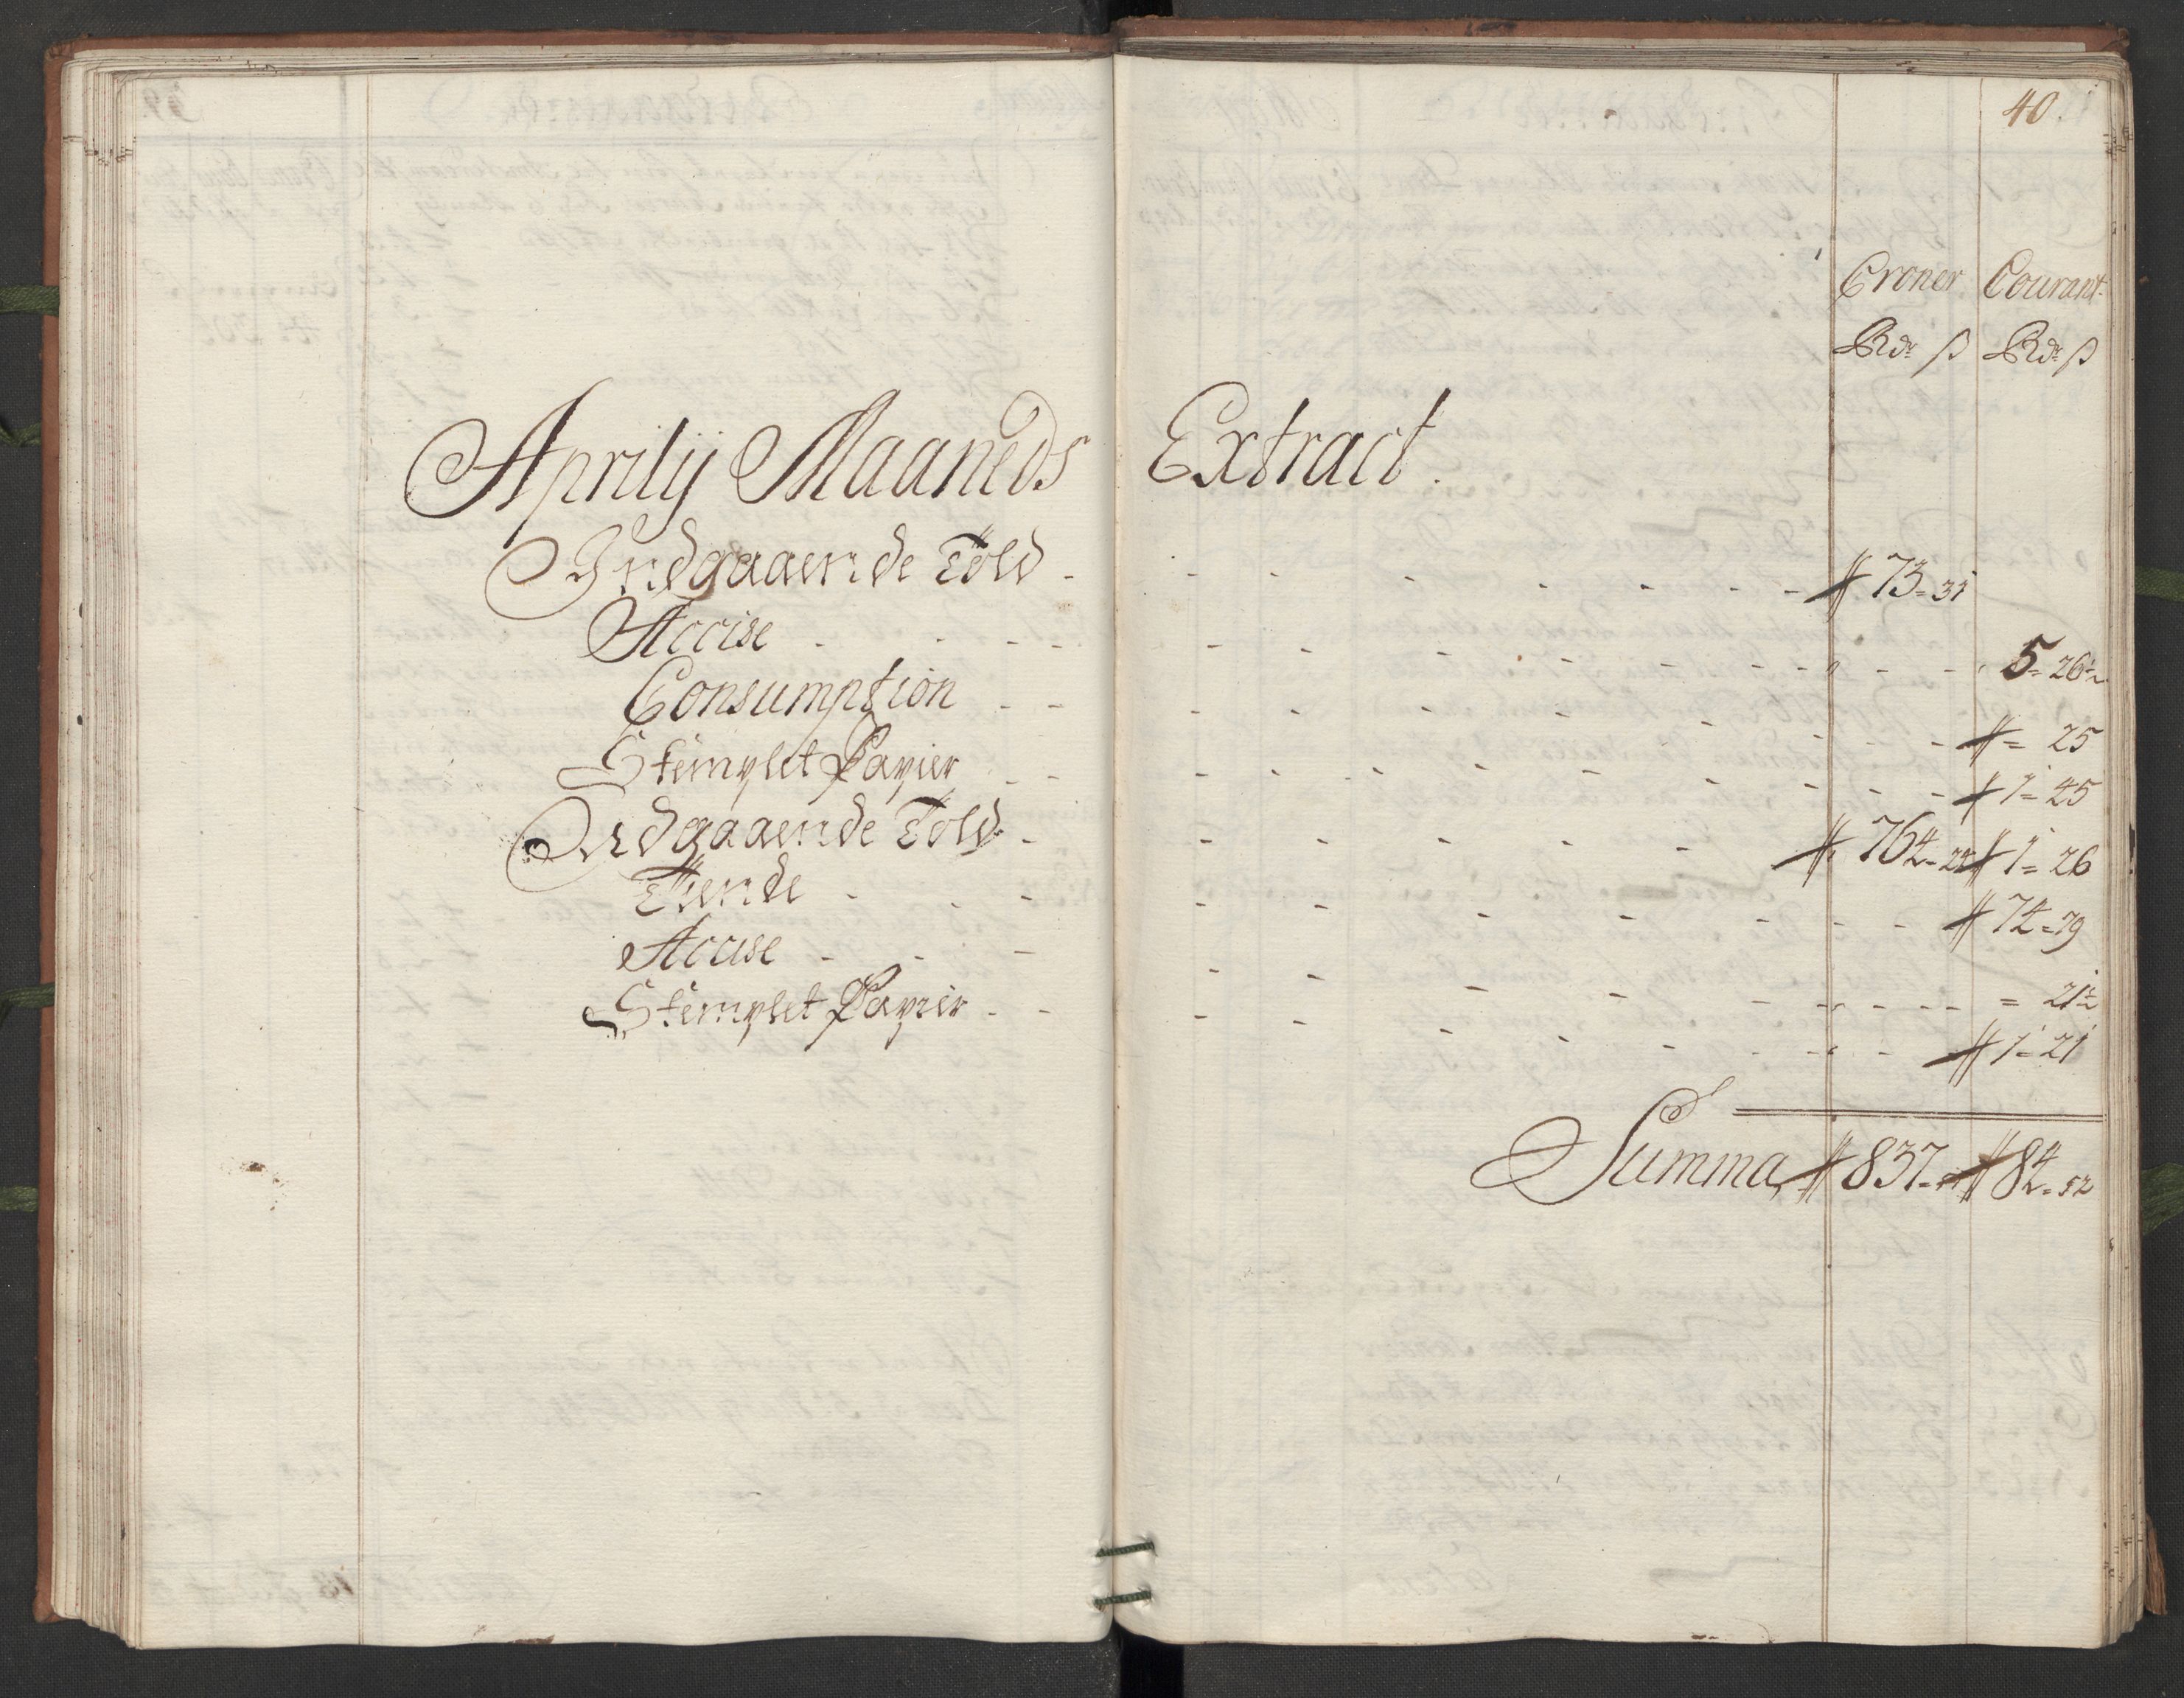 40.
Croner Courant
Rdr ß Rdr ß
Aprilij Maaneds Extract.
Indgaaende Told - - - - - - - - 73 = 31
Accise - - - - - - - - - - - - 5 = 26½
Consumption - - - - - - - - - = 25
Stemplet Papier - - - - - - - - - - 1 = 45
Udgaaende Told - - - - - 764 = 1 = 26
Tiende - - - - - - - - - - 74 = 79
Accise - - - - - - - - - - = 21½
Stemplet Papier - - - - - - - - - 1 = 21
Summa 837 = 84 = 52